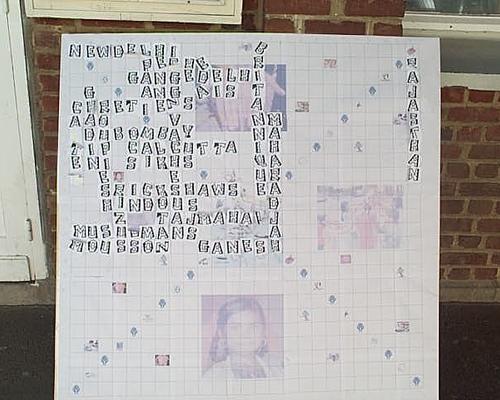 NEWDELHI
GANGEDELHI
CHRETIENS
BOMBAY
CALCUTTA
SIKHS
RICKSHAWS
HINDOUS
TAJMAHAL
MUSULMANS
MOUSSON GANESH
BRITANNIQUE
MAHARADJAH
RAJASTHAN